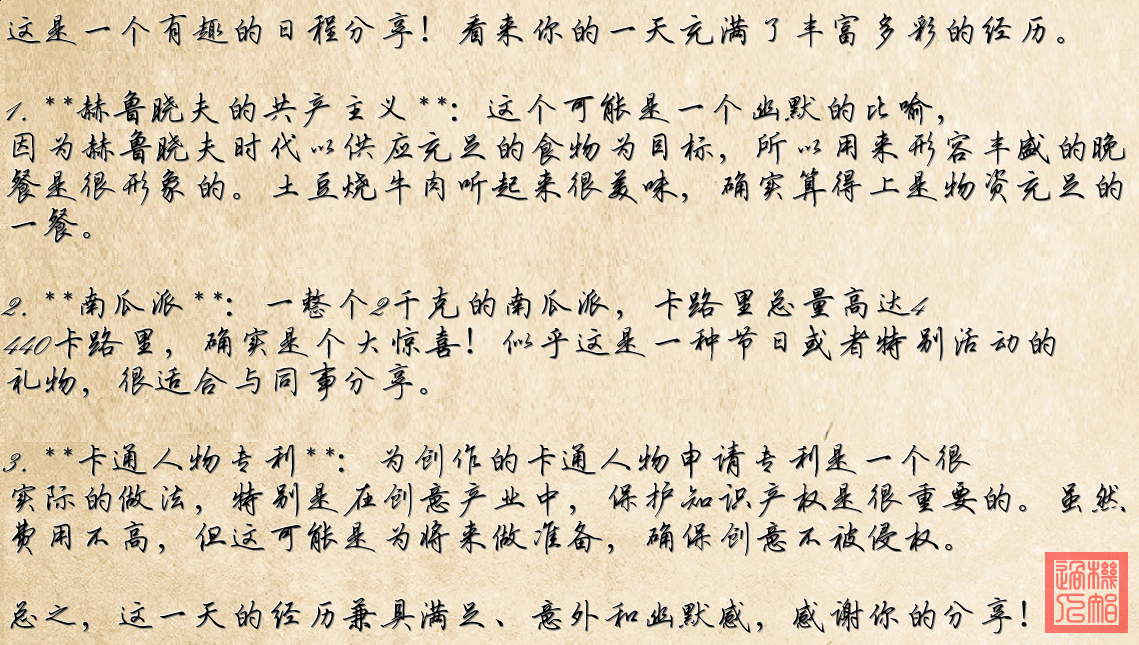 这是一个有趣的日程分享！看来你的一天充满了丰富多彩的经历。
1. **赫鲁晓夫的共产主义**：这个可能是一个幽默的比喻，
因为赫鲁晓夫时代以供应充足的食物为目标，所以用来形容丰盛的晚
餐是很形象的。土豆烧牛肉听起来很美味，确实算得上是物资充足的
一餐。
2. **南瓜派**：一整个2千克的南瓜派，卡路里总量高达4
440卡路里，确实是个大惊喜！似乎这是一种节日或者特别活动的
礼物，很适合与同事分享。
3. **卡通人物专利**：为创作的卡通人物申请专利是一个很
实际的做法，特别是在创意产业中，保护知识产权是很重要的。虽然
费用不高，但这可能是为将来做准备，确保创意不被侵权。
总之，这一天的经历兼具满足、意外和幽默感，感谢你的分享！